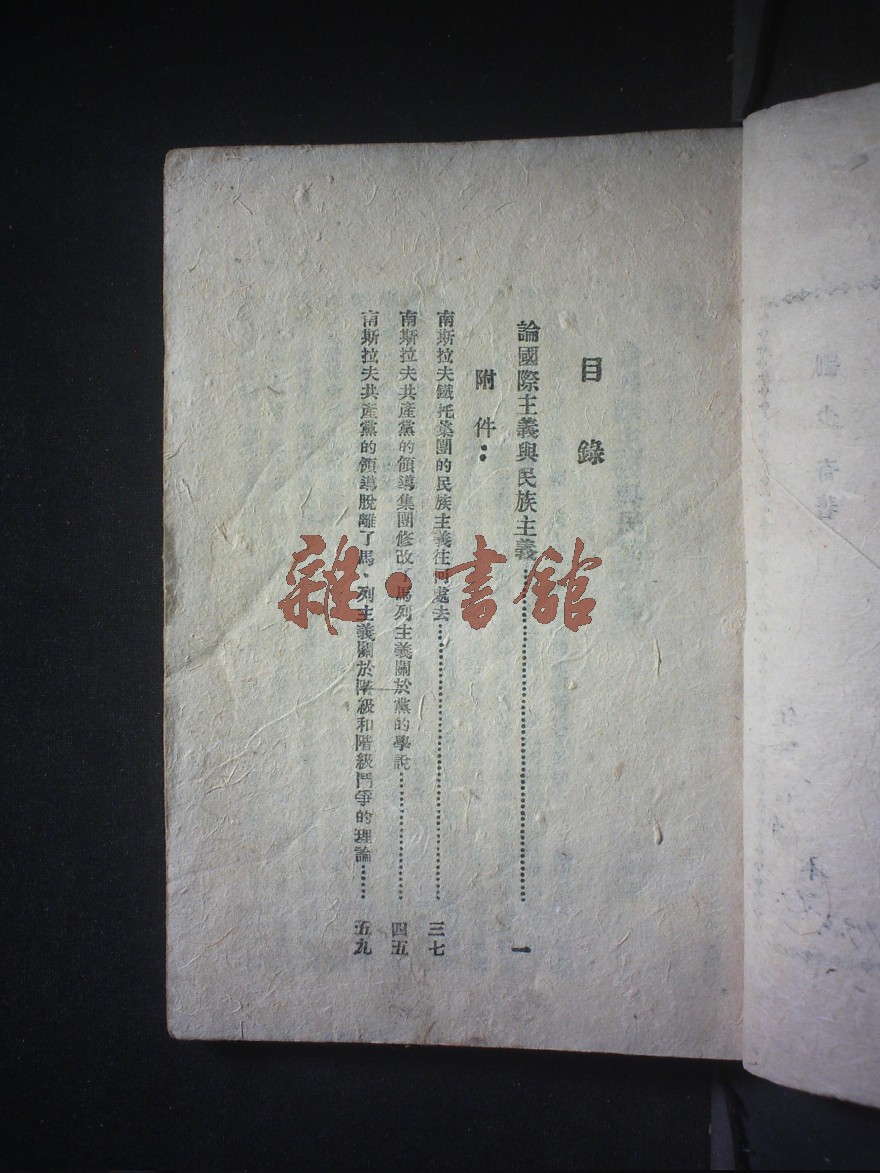 目錄
論國際主義與民族主義……一
附件：
南斯拉夫鐵托集團的民族主義往何處去……三七
南斯拉夫共產黨的領導集團修改了馬列主義關於黨的學說……四五
南斯拉夫共產黨的領導脫離了馬、列主義關於階級和階級鬥爭的理論……五九
雜·書館